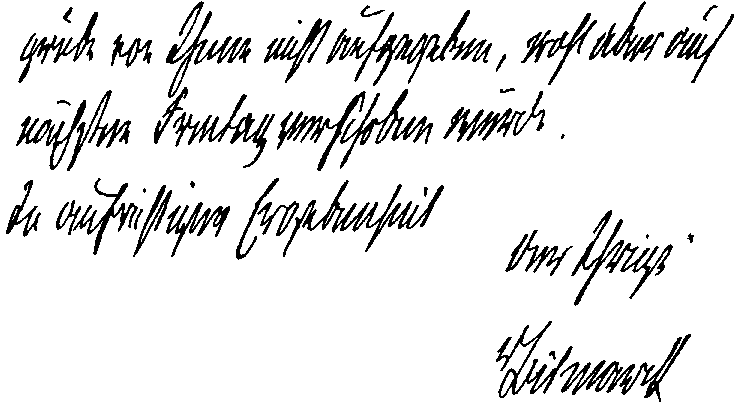 von Ihnen nicht aufgegeben, wohl aber auf
nächsten Freitag verschoben würde.
In aufrichtiger Ergebenheit
der Ihrige
vBismarck